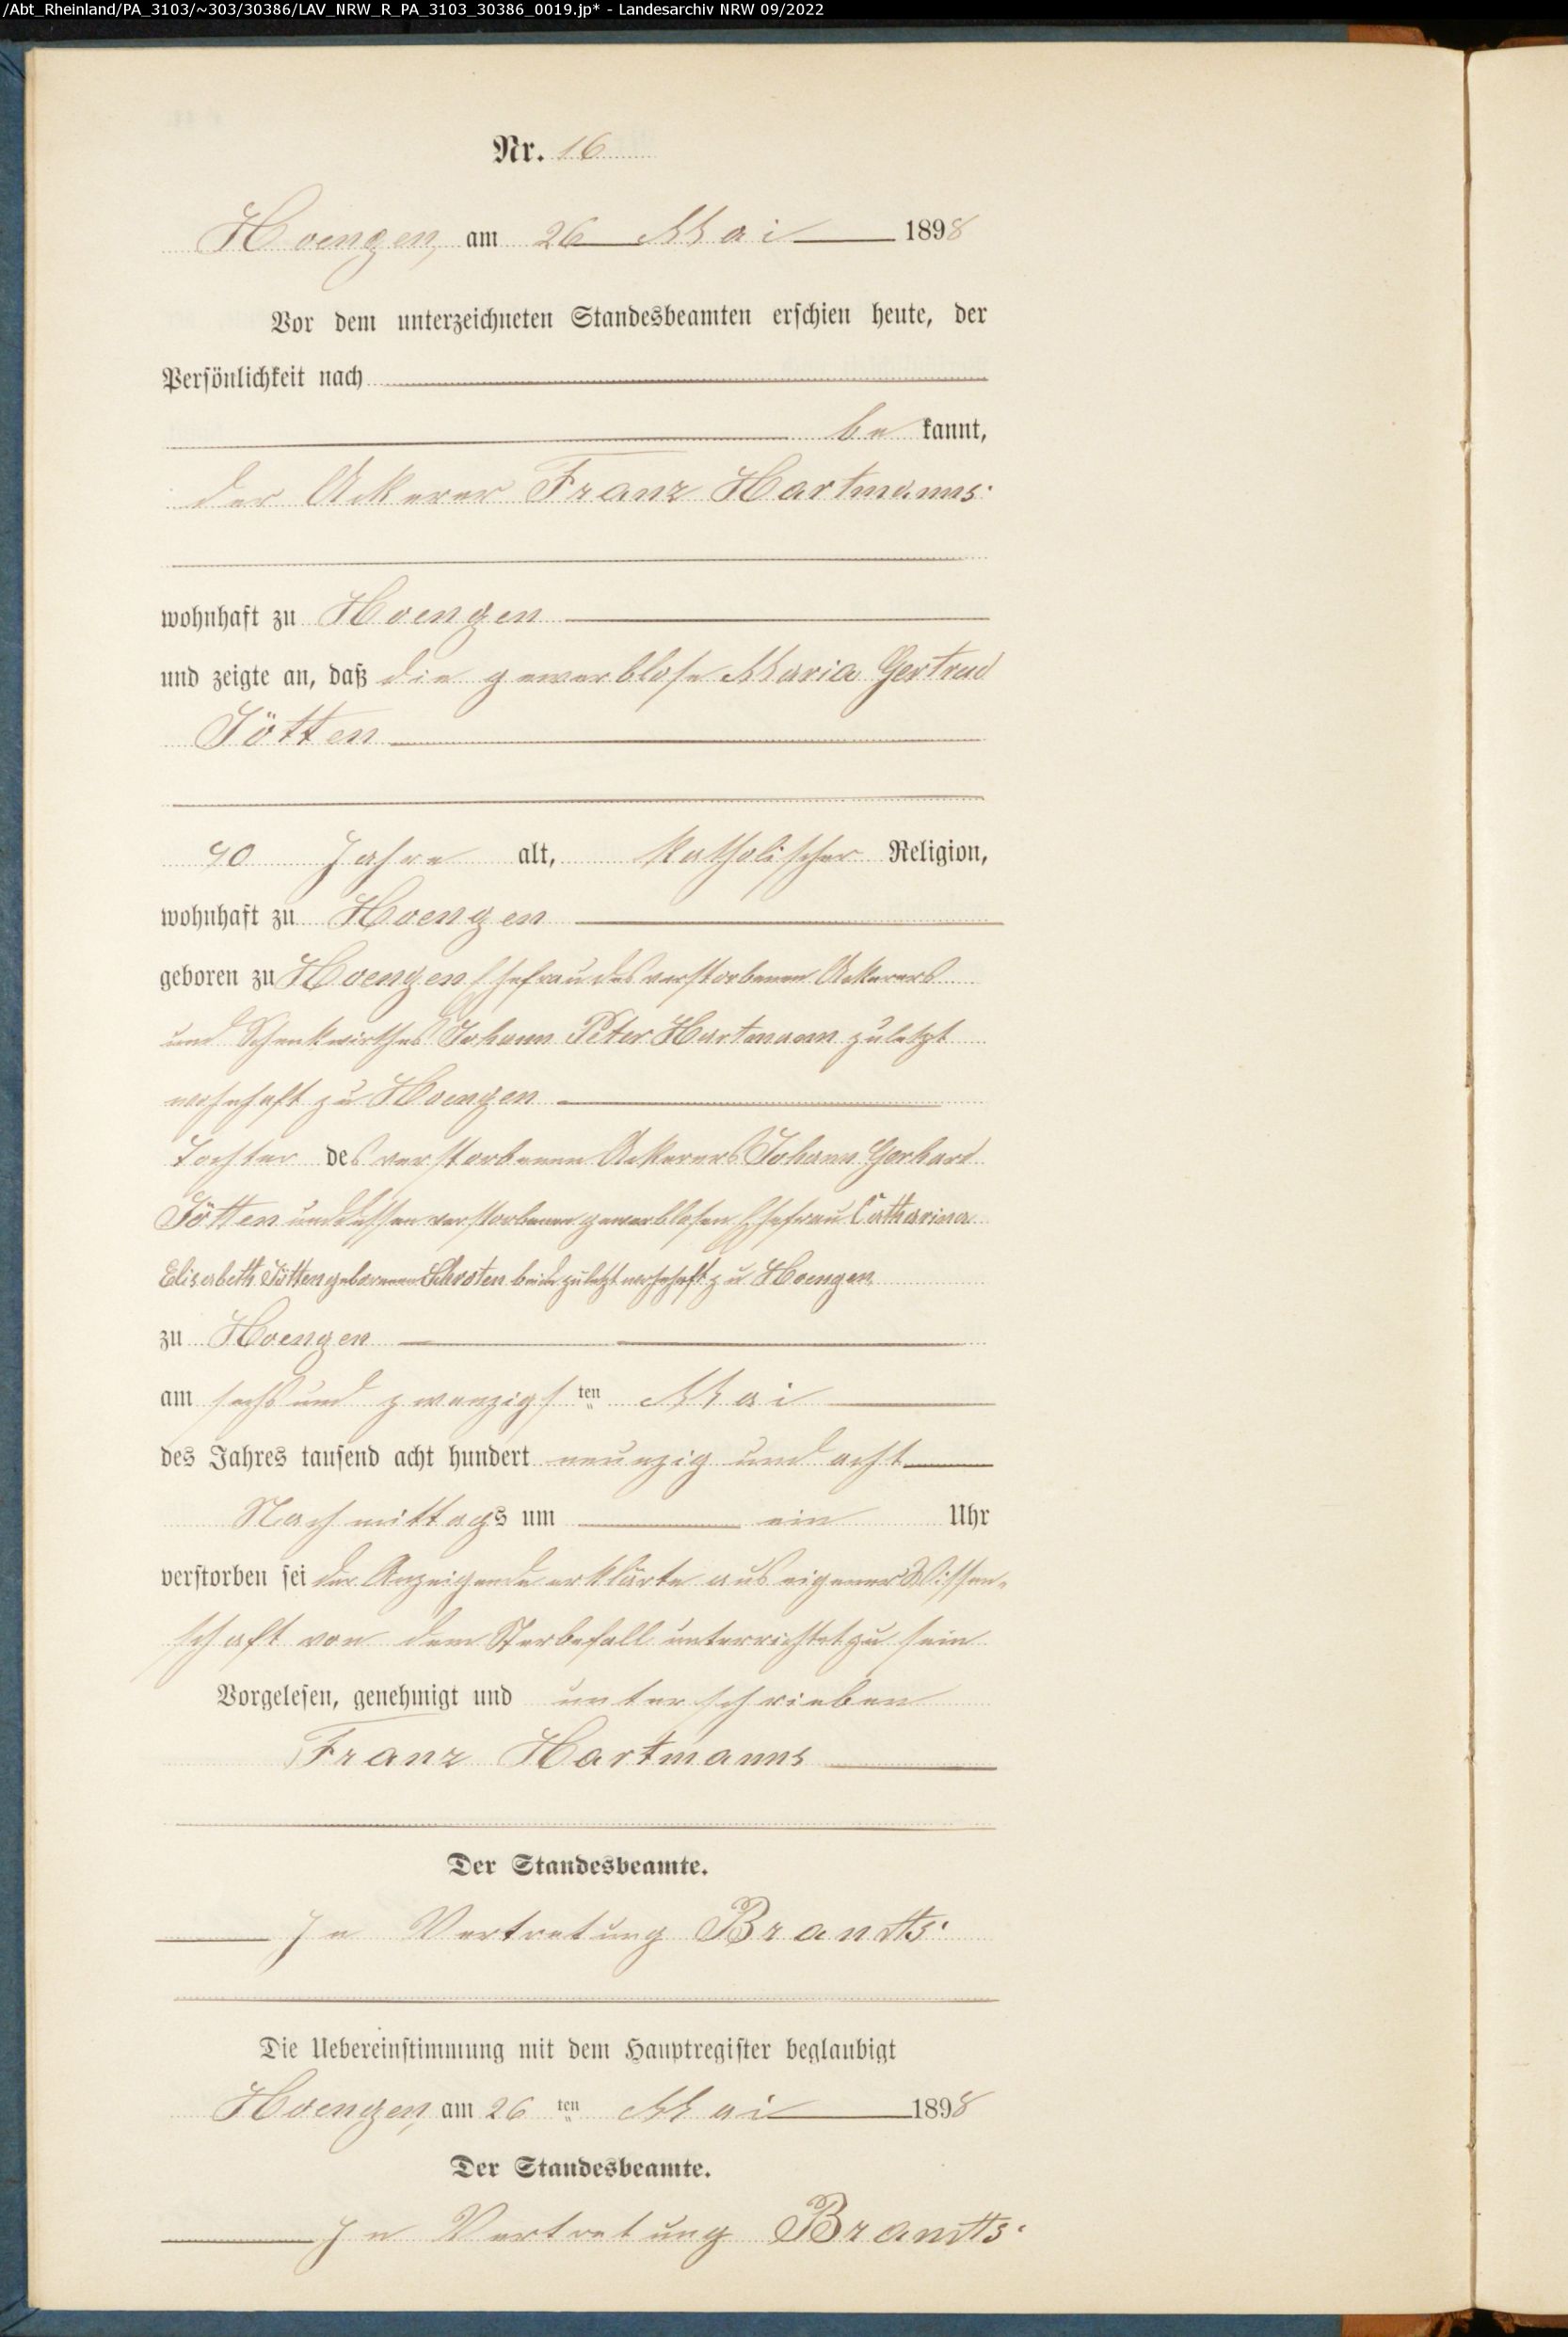 /Abt_Rheinland/PA_3103/~303/30386/LAV_NRW_R_PA_3103_30386_0019.jp* - Landesarchiv NRW 09/2022
Nr. 16
Hoengen, am 26 Mai 1898
Vor dem unterzeichneten Standesbeamten erschien heute, der
Persönlichkeit nach
be kannt,
der Ackerer Franz Hartmanns
wohnhaft zu Hoengen
und zeigte an, daß die gewerblose Maria Gertrud
Jötten
Jahre alt, katholischer Religion,
wohnhaft zu Hoengen
geboren zu Hoengen Ehefrau des verstorbenen Ackerers
und Schenkwirthes Johann Peter Hartmann zuletzt
wohnhaft zu Hoengen
Tochter des verstorbenen Ackerers Johann Gerhard
Jötten und dessen verstorbenen gewerblosen Ehefrau Catharina
Elisabeth Jötten geborenen Schroten beide zuletzt wohnhaft zu Hoengen
zu Hoengen
am sechs und zwanzigsten Mai
des Jahres tausend acht hundert neunzig und acht
Nachmittags um ein Uhr
verstorben sei der Anzeigende erklärte aus eigener Wissen-
schaft von dem Sterbefall unterrichtet zu sein
Vorgelesen, genehmigt und unterschrieben
Franz Hartmanns
Der Standesbeamte.
In Vertretung Brandts
Die Uebereinstimmung mit dem Hauptregister beglaubigt
Hoengen, am 26 ten Mai 1898
Der Standesbeamte.
In Vertretung Brandts